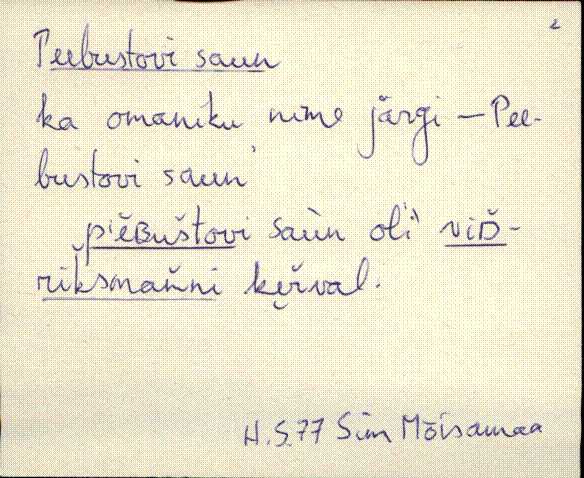 2
Peebustovi saun
ka omaniku nime järgi – Pee-
bustovi saun'
pìěBuštovi saùn oli viD̆-
riksmaňni kẹřval.
H.S.77 Sim Mõisamaa